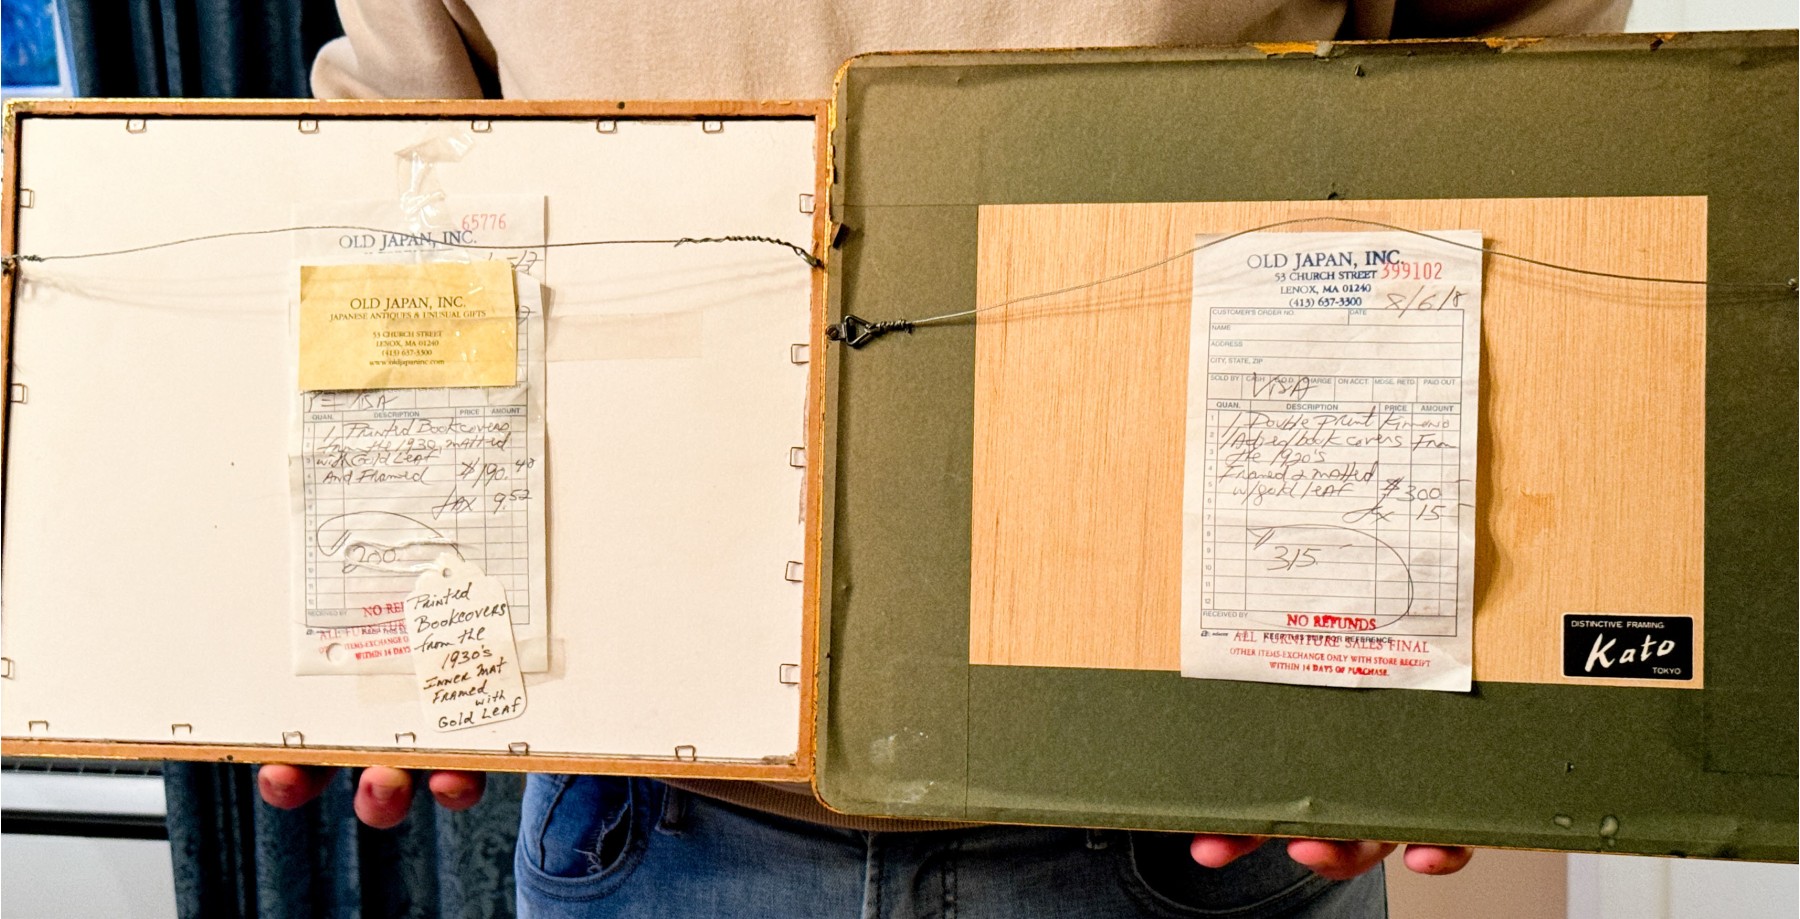 65776
OLD JAPAN, INC.
OLD JAPAN, INC.
JAPANESE ANTIQUES & UNUSUAL GIFTS
53 CHURCH STREET
LENOX, MA 01240
(413) 637-3300
www.oldjapaninc.com
VISA
QUAN. DESCRIPTION PRICE AMOUNT
1 Printed Bookcovers
from the 1930, matted
with Gold Leaf
And Framed $190.48
tax 9.52
200
RECEIVED BY
NO REF
ALL FURNITURE
ITEMS-EXCHANGE O
WITHIN 14 DAYS
Printed
Bookcovers
from the
1930's
INNER MAT
FRAMED
with
Gold Leaf
OLD JAPAN, INC.
53 CHURCH STREET 399102
LENOX, MA 01240
(413) 637-3300 8/6/8
CUSTOMER'S ORDER NO. DATE
NAME
ADDRESS
CITY, STATE, ZIP
SOLD BY CASH C.O.D. CHARGE ON ACCT. MDSE. RETD. PAID OUT
VISA
QUAN. DESCRIPTION PRICE AMOUNT
1 Double print Kimono
book covers From
the 1920's
Framed & matted
w/gold leaf $300
tx 15
315
RECEIVED BY
NO REFUNDS
KEEP THIS SLIP FOR REFERENCE
ALL FURNITURE SALES FINAL
OTHER ITEMS-EXCHANGE ONLY WITH STORE RECEIPT
WITHIN 14 DAYS OF PURCHASE.
DISTINCTIVE FRAMING
Kato
TOKYO